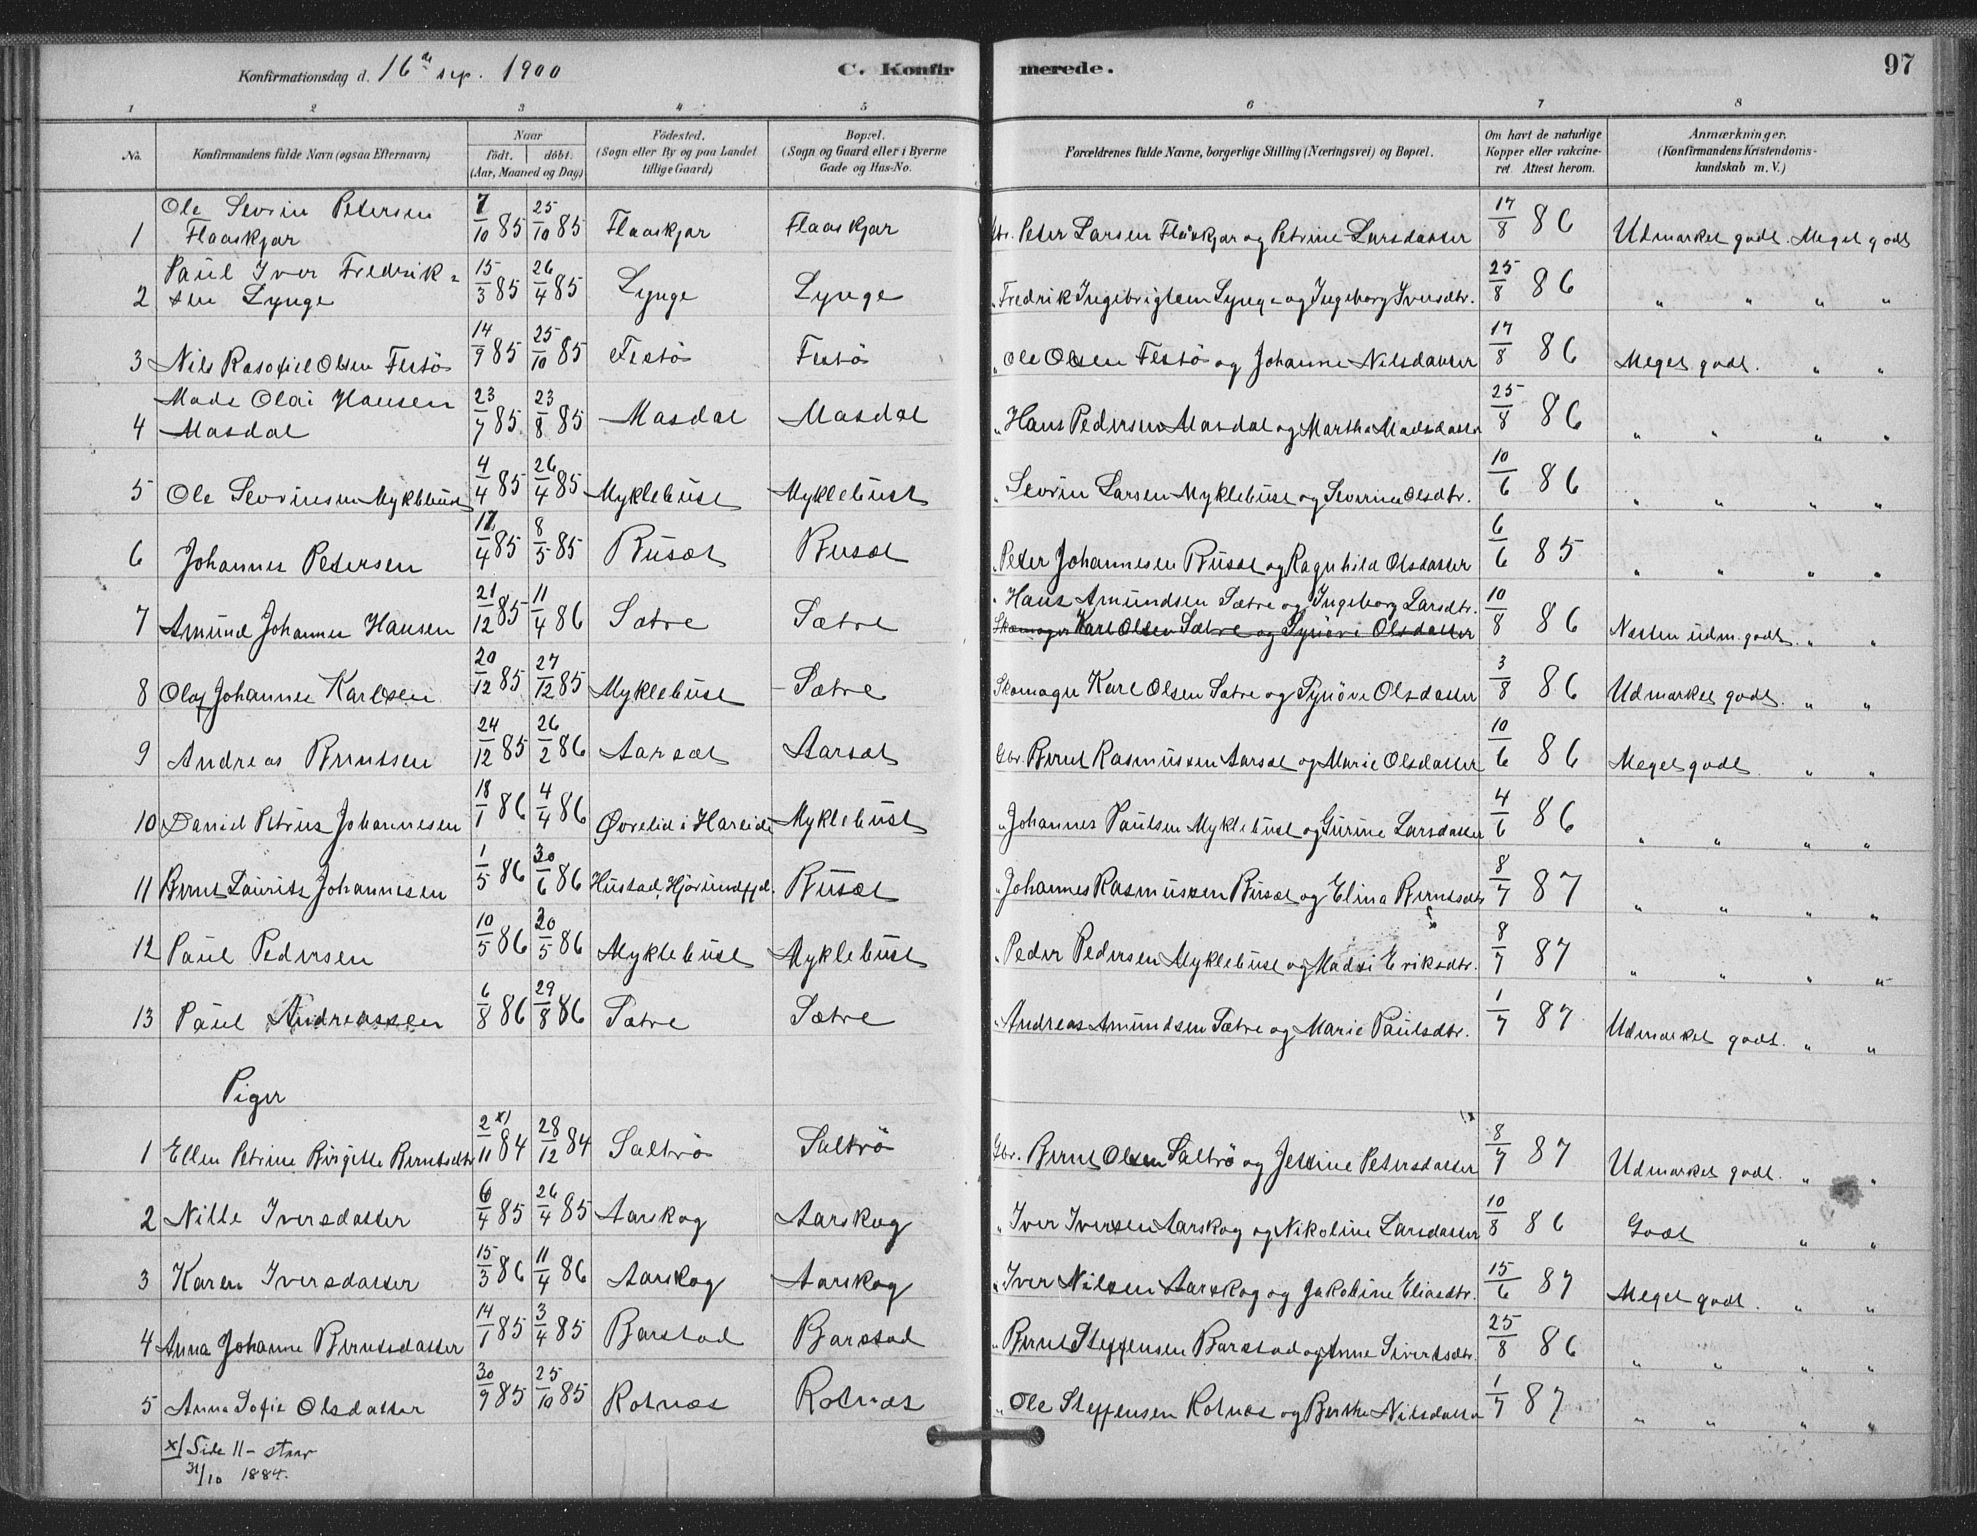 Konfirmationsdag d. 16de sep. 1900 C. Konfirmerede. 97
1 2 3 4 5 6 7 8
No. Konfirmandens fulde Navn (ogsaa Efternavn) Naar födt. döbt. (Aar, Maaned og Dag) Födested. (Sogn eller By og paa Landet tillige Gaard) Bopæl. (Sogn og Gaard eller i Byerne Gade og Hus-No. Forældrenes fulde Navne, borgerlige Stilling (Næringsvei) og Bopæl. Om havt de naturlige Kopper eller vakcineret. Attest herom. Anmærkninger. (Konfirmandens Kristendomskundskab m. V.)
1 Ole Sevrin Petersen Flaaskjær 7/10 85 25/10 85 Flaaskjær Flaaskjær Gbr. Peter Larsen Flåskjær og Petrine Larsdatter 17/8 86 Udmærket godt. Meget godt
2 Paul Iver Fredriksen Lynge 15/3 85 26/4 85 Lynge Lynge " Fredrik Ingebrigtsen Lynge og Ingeborg Iversdtr. 25/8 86 " " " "
3 Nils Rasofiel Olsen Festö 14/9 85 25/10 85 Festö Festö " Ole Olsen Festö og Johanne Nilsdatter 17/8 86 Meget godt. " "
4 Mads Olai Hansen Masdal 23/7 85 23/8 85 Masdal Masdal " Hans Pedersen Masdal og Martha Madsdatter 25/8 86 " " " "
5 Ole Sevrinsen Myklebust 4/4 85 26/4 85 Myklebust Myklebust " Sevrin Larsen Myklebust og Severine Olsdtr. 10/6 86 " " " "
6 Johannes Petersen 17/4 85 8/5 85 Busæt Busæt " Peter Johannesen Busæt og Ragnhild Olsdatter 6/6 85 " " " "
7 Amund Johannes Hansen 21/12 85 11/4 86 Sætre Sætre " Hans Amundsen Sætre og Ingeborg Larsdtr. 10/8 86 Næsten udm. godt. " "
Skomager Karl Olsen Sætre og Synöve Olsdatter
8 Olaf Johannes Karlsen 20/12 85 27/12 85 Myklebust Sætre Skomager Karl Olsen Sætre og Synöve Olsdatter 3/8 86 Udmærket godt. " "
9 Andreas Berntsen 24/12 85 26/2 86 Aarsæt Aarsæt Gbr. Bernt Rasmussen Aarsæt og Marie Olsdatter 10/6 86 Meget godt " "
10 Daniel Petrus Johannesen 18/1 86 4/4 86 Øvrelid i Hareide Myklebust " Johannes Paulsen Myklebust og Gurine Larsdatter 4/6 86 " " " "
11 Bernt Laurits Johannesen 1/5 86 30/6 86 Hustad, Hjörundfjd. Busæt " Johannes Rasmussen Busæt og Elina Berntsdtr 8/7 87 " " " "
12 Paul Pedersen 10/5 86 20/5 86 Myklebust Myklebust " Peder Pedersen Myklebust og Madsi Eriksdtr. 8/7 87 " " " "
13 Paul Andreassen 6/8 86 29/8 86 Sætre Sætre " Andreas Amundsen Sætre og Marie Paulsdtr. 1/7 87 Udmærket godt. " "
Piger
1 Ellen Petrine Birgitte Berntsdtr 2/11 x) 84 28/12 84 Saltrö Saltrö Gbr. Bernt Olsen Saltrö og Jensine Petersdatter 8/7 87 Udmærket godt. " "
2 Nille Iversdatter 6/4 85 26/4 85 Aarskog Aarskog " Iver Iversen Aarskog og Nikoline Larsdatter 10/8 86 Godt " "
3 Karen Iversdatter 15/3 86 11/4 86 Aarskog Aarskog " Iver Nilsen Aarskog og Jakobine Eliasdtr. 15/6 87 Meget godt. " "
4 Anna Johanne Berntsdatter 14/1 85 3/4 85 Barstad Barstad " Bernt Steffensen Barstad og Anne Sivertsdtr. 25/8 86 " " " "
5 Anna Sofie Olsdatter 30/9 85 25/10 85 Rotnæs Rotnæs " Ole Steffensen Rotnæs og Berthe Nilsdatter 1/7 87 " " " "
x) Side 11 - staar
31/10 1884.